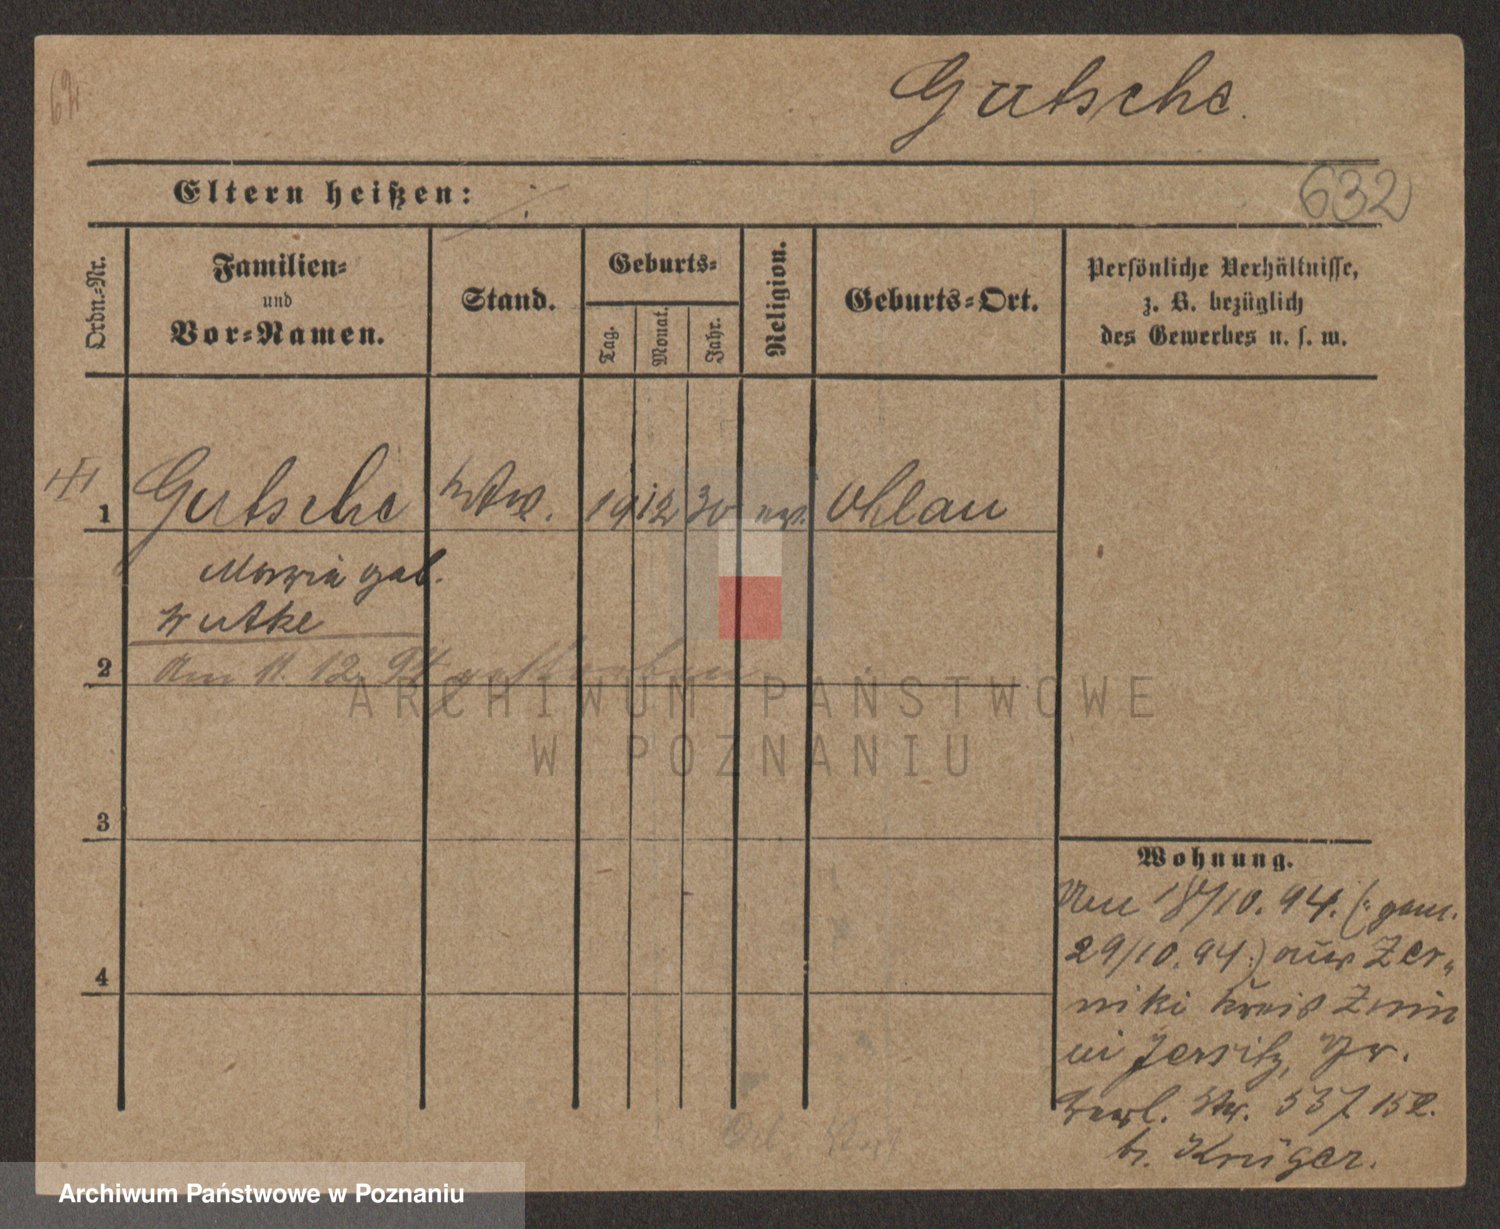 Gutsche.
Eltern heißen:
632
Ordn.-Nr.
Familien-
und
Vor-Namen.
Stand.
Geburts-
Tag.
Monat.
Jahr.
Religion.
Geburts-Ort.
Persönliche Verhältnisse,
z. B. bezüglich
des Gewerbes u. s. w.
1 Gutsche Wtw. 19 12 30 ev. Ohlau
Maria geb.
Wutke
2 Am 11. 12. 94 gestorben
ARCHIWUM PAŃSTWOWE
W POZNANIU
3
Wohnung.
Am 18/10. 94. (: gem.
29/10. 94 :) aus Zer-
niki Kreis Znin
in Jersitz, Gr.
Berl. Str. 537 15
b. Krüger.
4
Archiwum Państwowe w Poznaniu